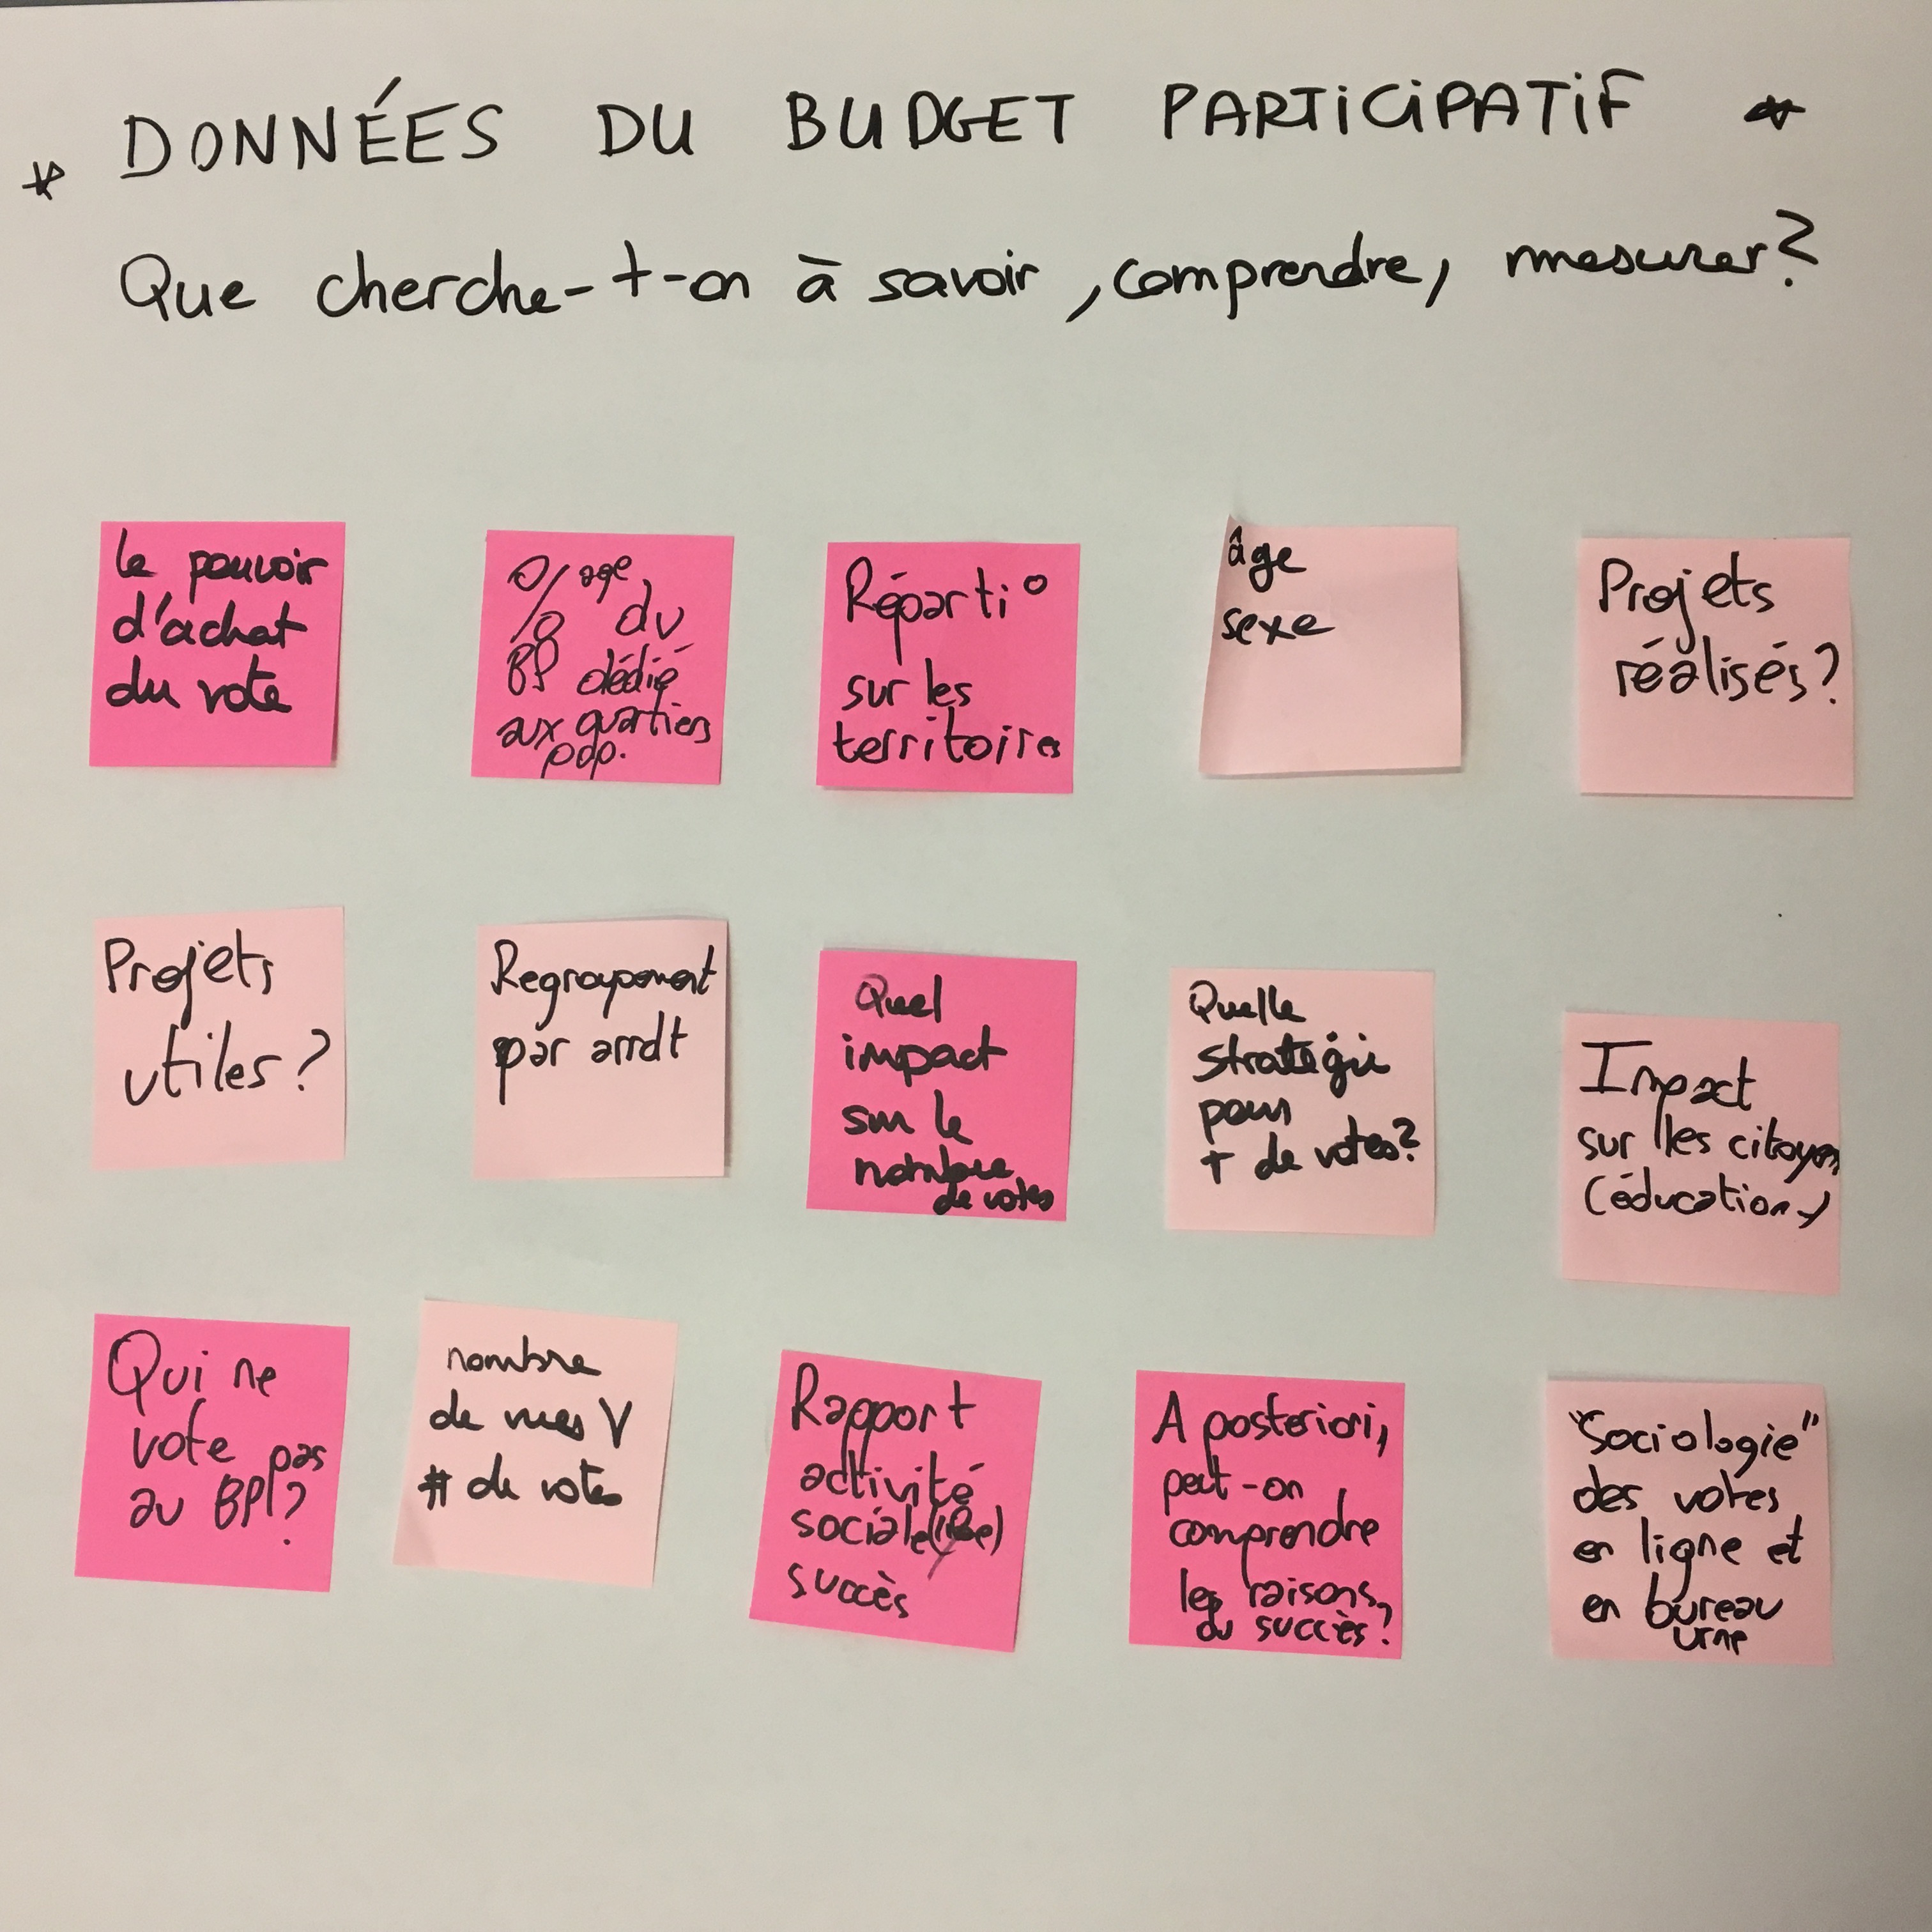 * DONNÉES DU BUDGET PARTICIPATIF *
Que cherche-t-on à savoir, comprendre, mesurer?
le pouvoir
d'achat
du vote
%age
du
BP dédié
aux quartiers
pop.
Réparti°
sur les
territoires
âge
sexe
Projets
réalisés?
Projets
utiles?
Regroupement
par arrdt
Quel
impact
sur le
nombre
de votes
Quelle
stratégie
pour
+ de votes?
Impact
sur les citoyens
(éducation)
Qui ne
vote pas
au BP?
nombre
de vues V
# de votes
Rapport
activité
sociale(like)
succès
A posteriori,
peut-on
comprendre
les raisons
du succès?
"Sociologie"
des votes
en ligne et
en bureau
urne